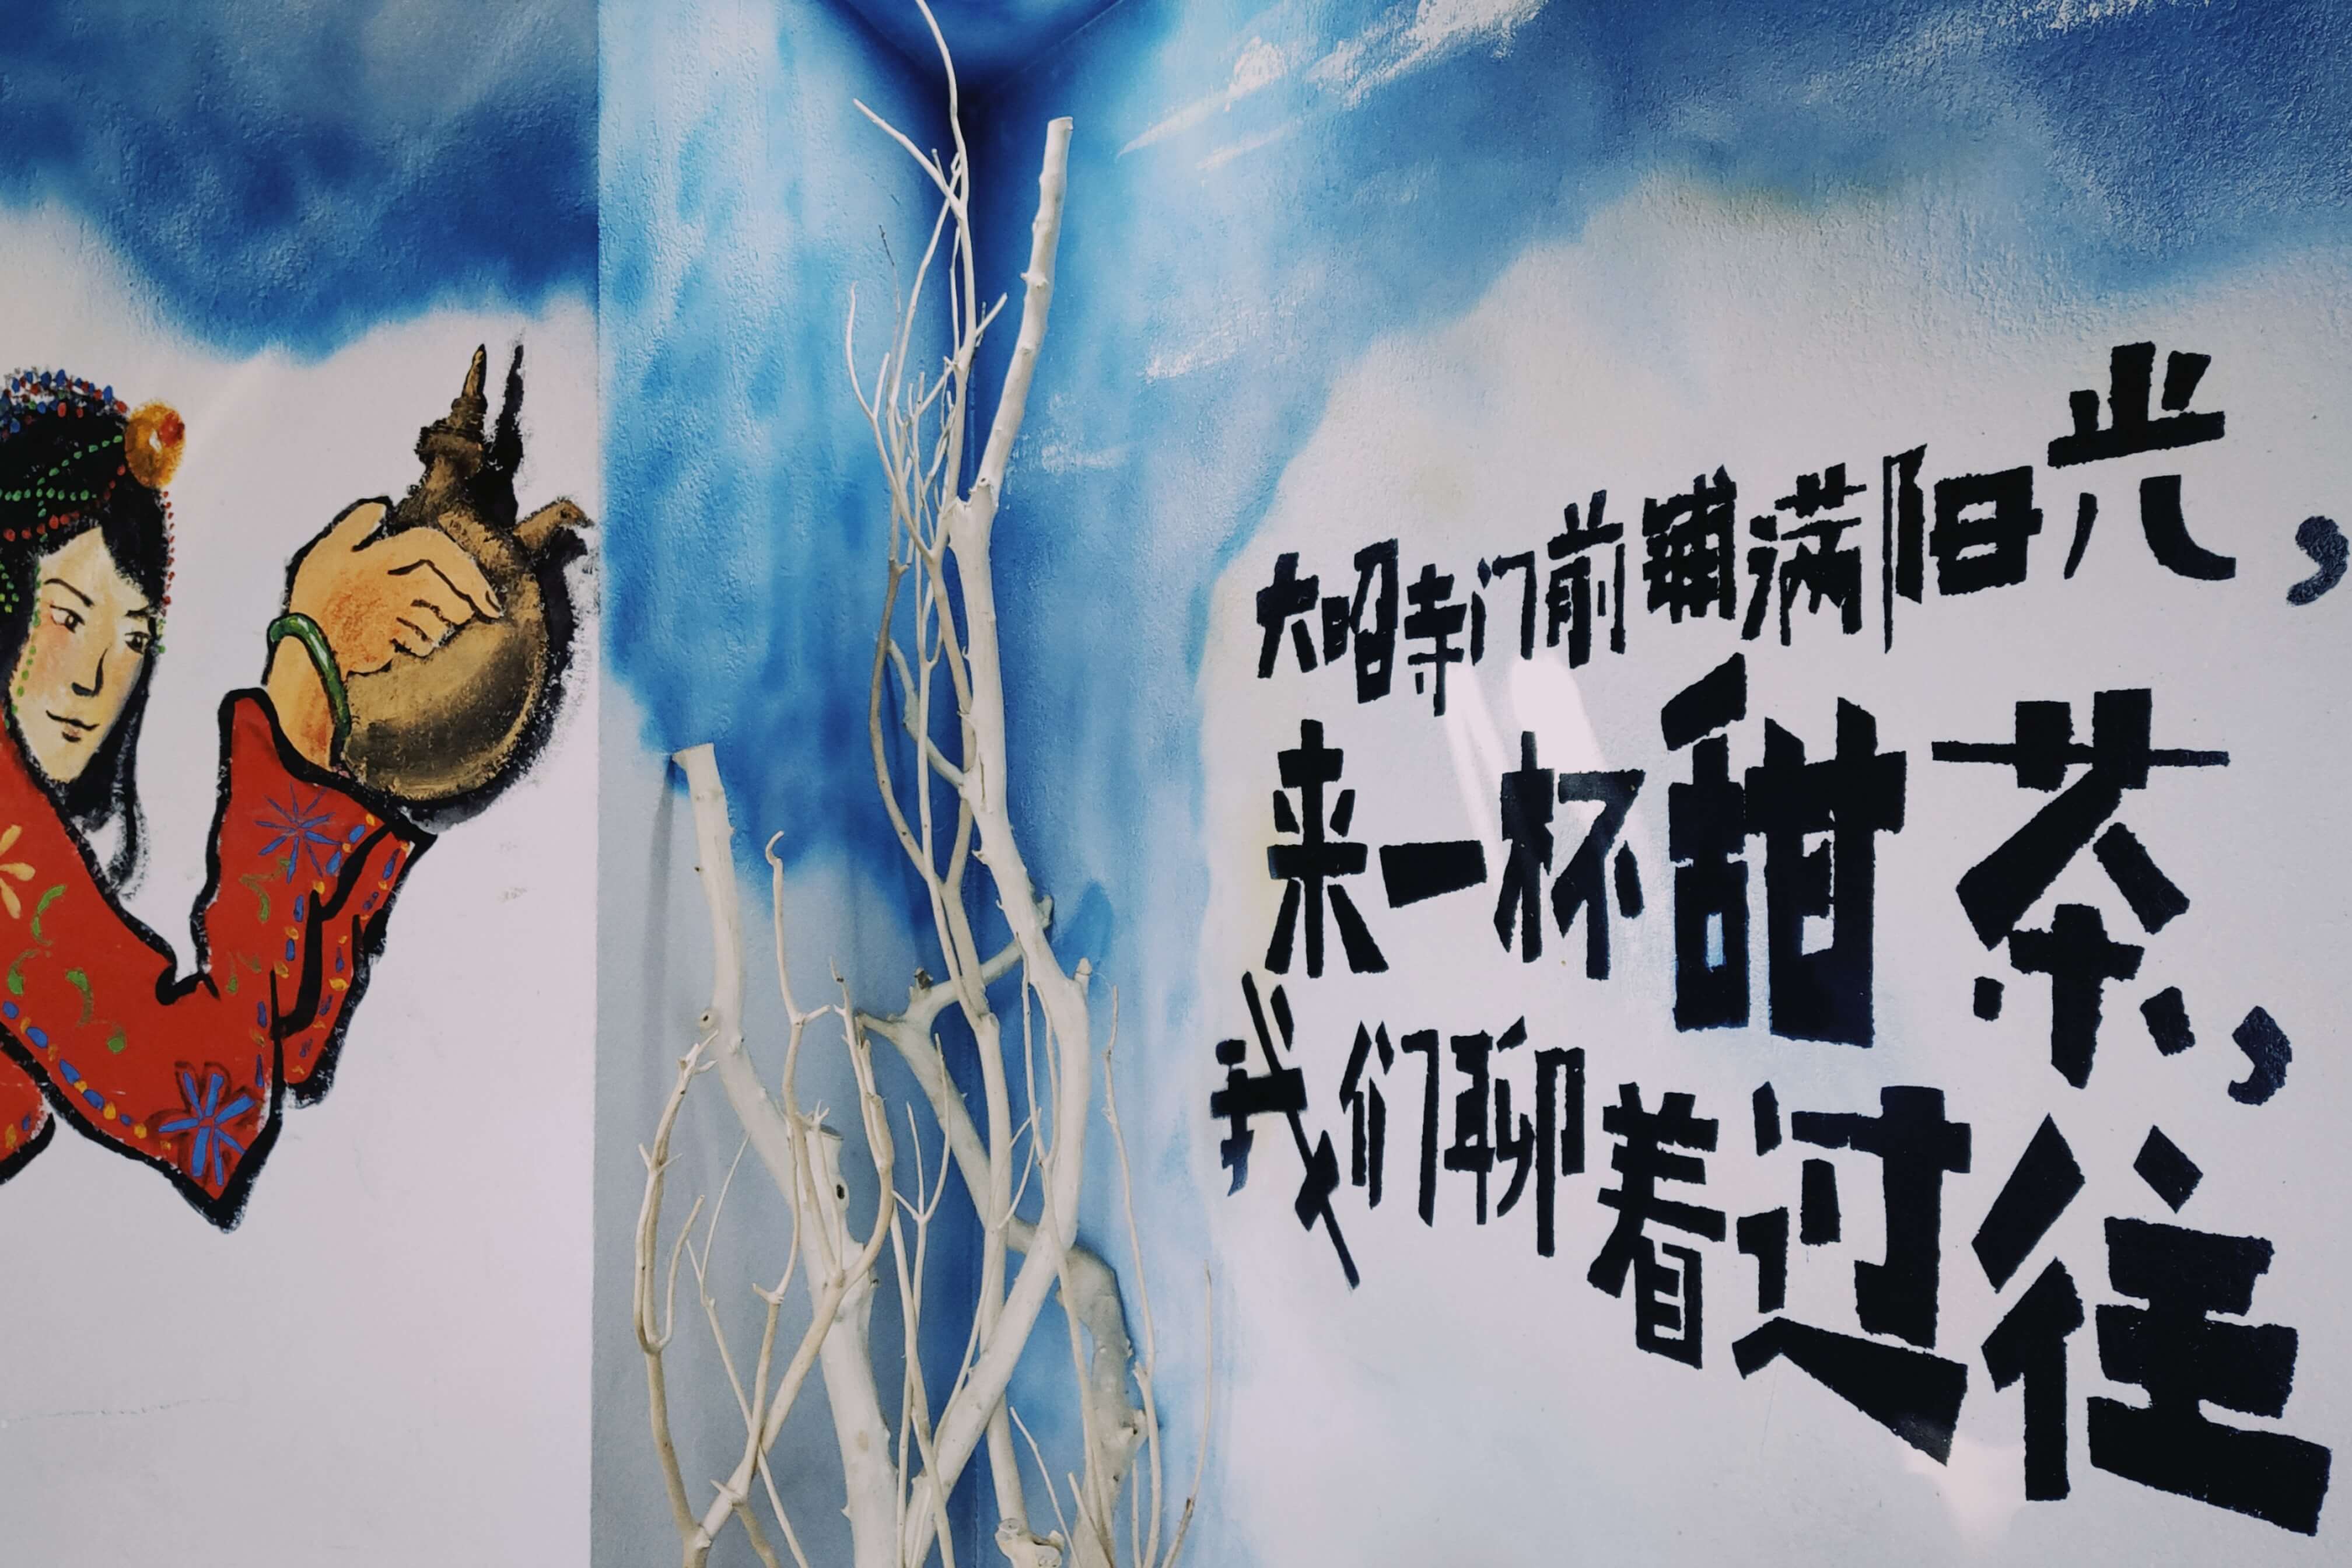 大昭寺门前铺满阳光，
来一杯甜茶，
我们聊着过往